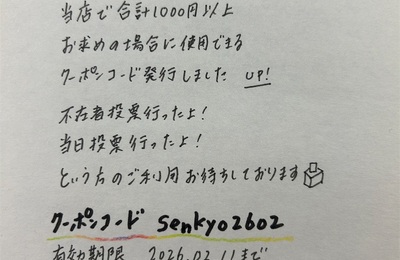 当店で合計1000円以上
お求めの場合に使用できる
クーポンコード発行しました UP!
不在者投票行ったよ!
当日投票行ったよ!
という方のご利用お待ちしております
クーポンコード senkyo2602
有効期限 2026.02.11まで